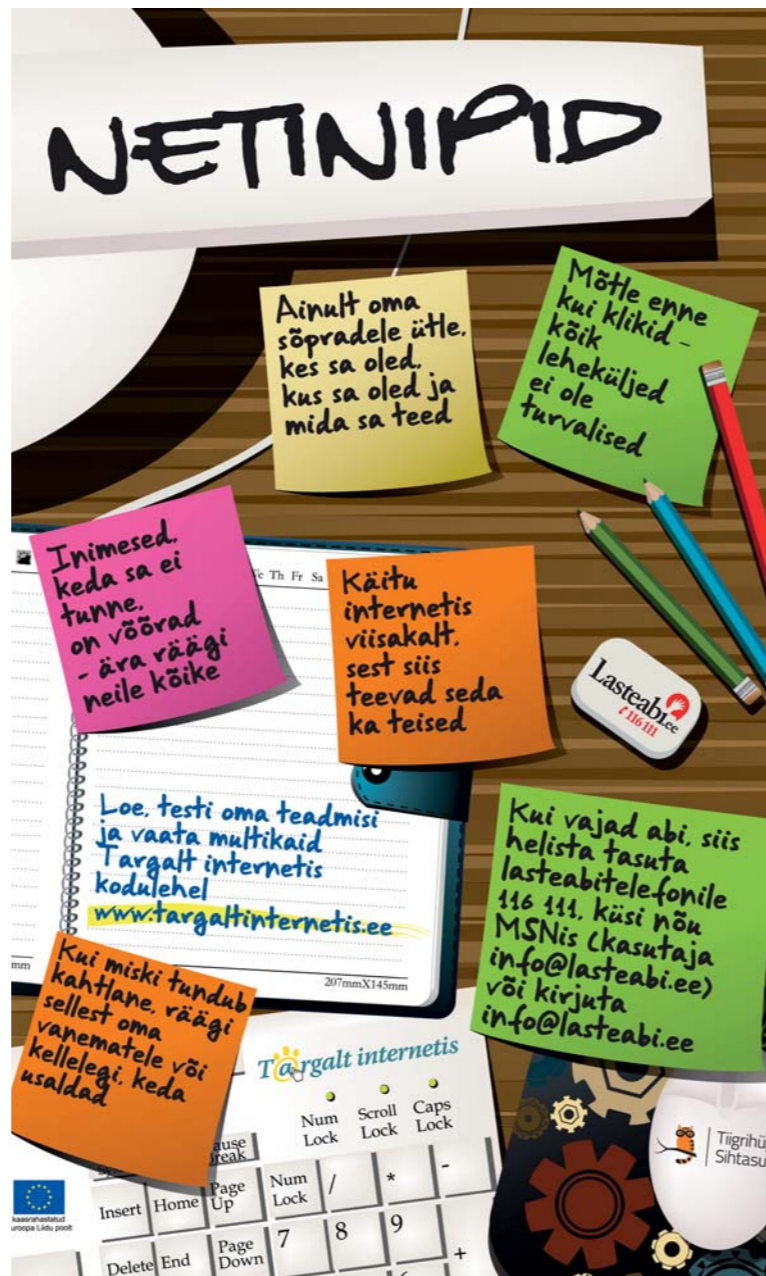 NETINIPID
Ainult oma
sõpradele ütle,
kes sa oled,
kus sa oled ja
mida sa teed
Mõtle enne
kui klikid –
kõik
leheküljed
ei ole
turvalised
Inimesed,
keda sa ei
tunne,
on võõrad
- ära räägi
neile kõike
Th Fr Sa
Käitu
internetis
viisakalt,
sest siis
teevad seda
ka teised
Lasteabi.ee
116 111
Loe, testi oma teadmisi
ja vaata multikaid
Targalt internetis
kodulehel
www.targaltinternetis.ee
mm
207mmX145mm
Kui vajad abi, siis
helista tasuta
lasteabitelefonile
116 111, küsi nõu
MSNis (kasutaja
info@lasteabi.ee)
või kirjuta
info@lasteabi.ee
Kui miski tundub
kahtlane, räägi
sellest oma
vanematele või
kellelegi, keda
usaldad
T@rgalt internetis
Num Lock
Scroll Lock
Caps Lock
Insert
Home
Page Up
Num Lock
/
*
-
Delete
End
Page Down
7
8
9
+
Tiigrihü
Sihtasu
kaasrahastatud
uroopa Liidu poolt